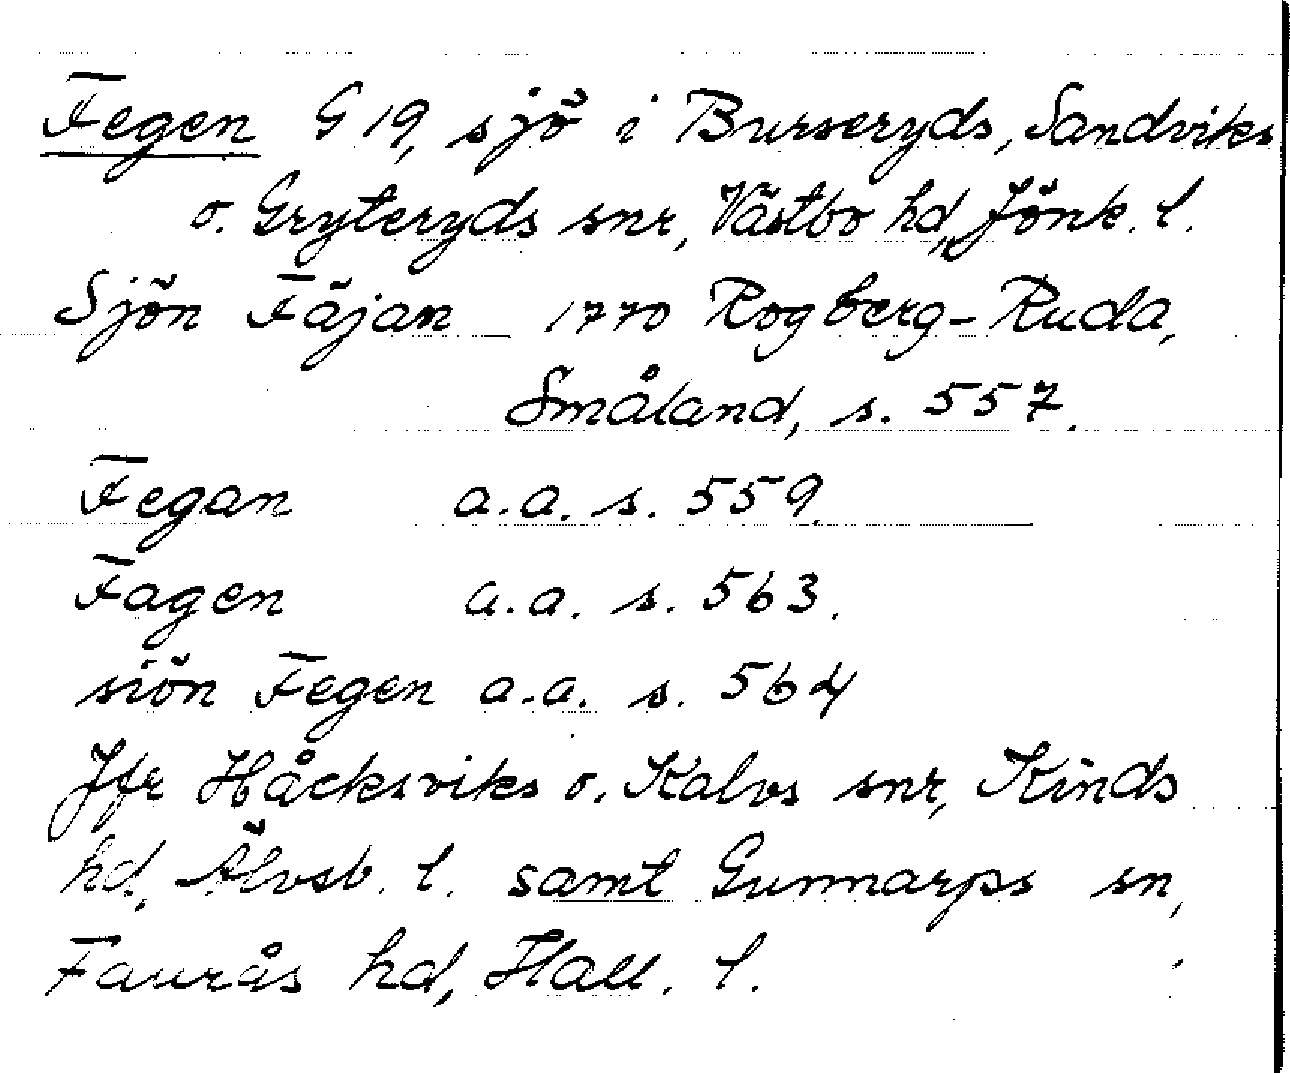 Fegen G 19, sjö i Burseryds, Sandviks
o. Gryteryds snr, Västbo hd, Jönk. l.
Sjön Fäjan 1770 Rogberg-Ruda,
Småland, s. 557.
Fegan a.a. s. 559.
Fagen a.a. s. 563.
siön Fegen a.a. s. 564
Jfr Håcksviks o. Kalvs snr, Kinds
hd, Älvsb. l. samt Gunnarps sn,
Faurås hd, Hall. l.